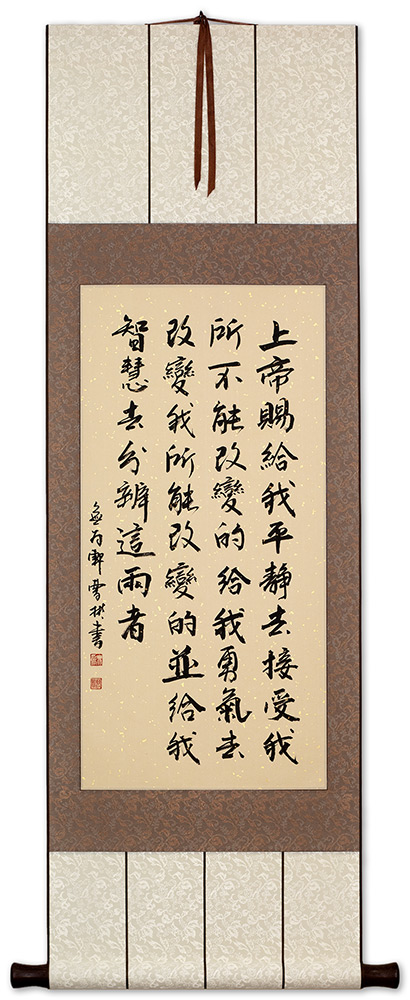 上帝賜給我平靜去接受我
所不能改變的給我勇氣去
改變我所能改變的並給我
智慧去分辨這兩者
書